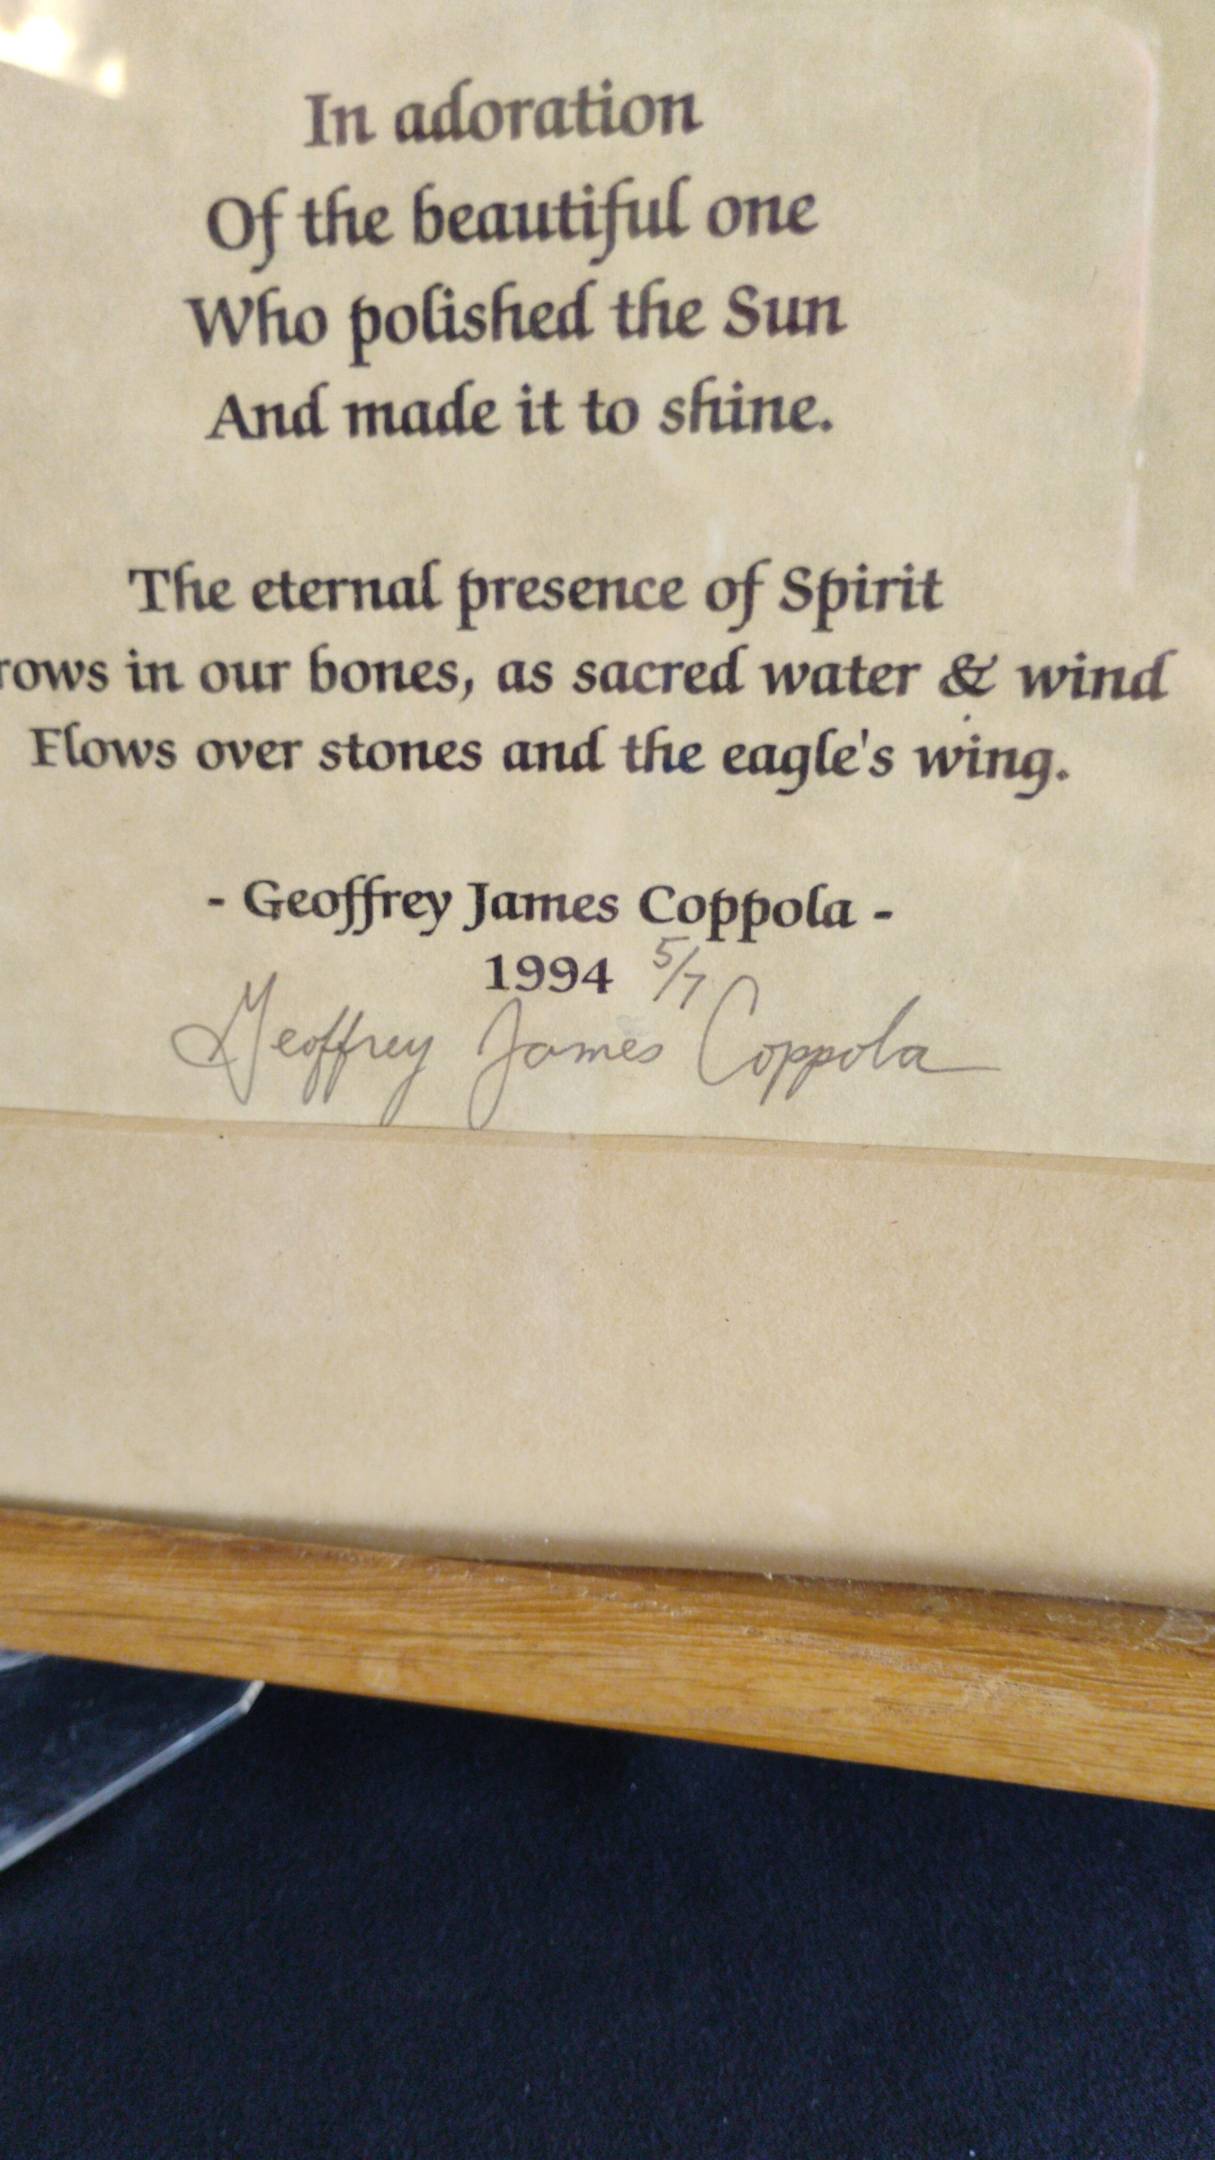 In adoration
Of the beautiful one
Who polished the Sun
And made it to shine.
The eternal presence of Spirit
rows in our bones, as sacred water & wind
Flows over stones and the eagle's wing.
- Geoffrey James Coppola -
1994 5/7
Geoffrey James Coppola